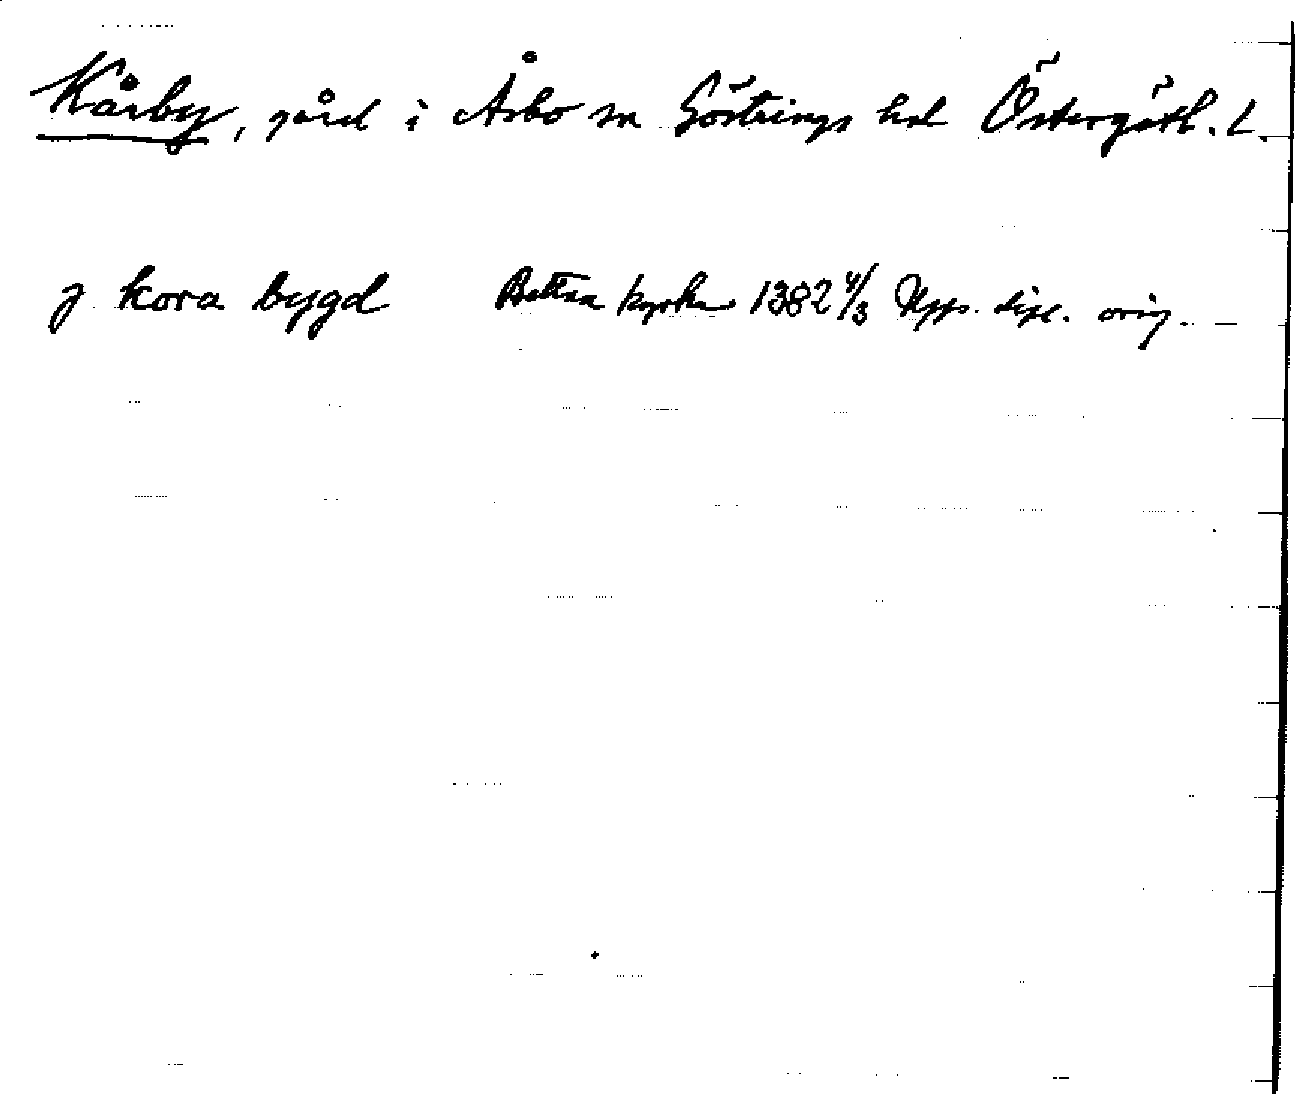 Kårby, gård i Åsbo sn Göstrings hd Östergötl. L.
j kora bygd Bettna kyrka 1382 4/3 Upps. dipl. orig.